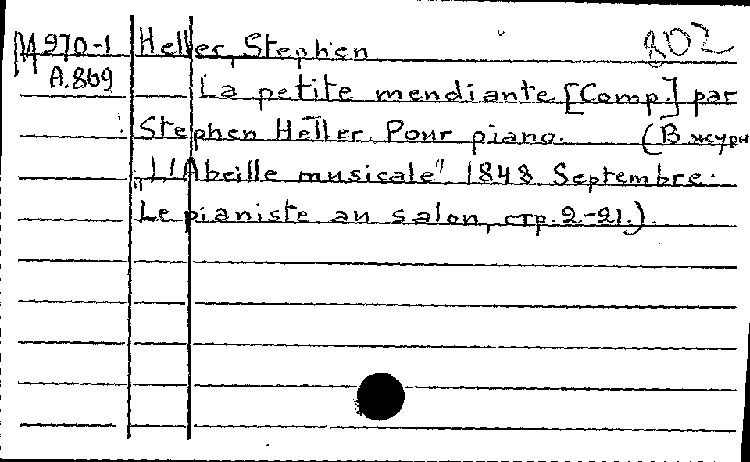 М 970-1 Heller, Stephen 802
А.869 La petite mendiante [Comp.] par
Stephen Heller. Pour piano. (В журн
„L'Abeille musicale" 1848 Septembre.
Le pianiste au salon, стр. 2-21.)